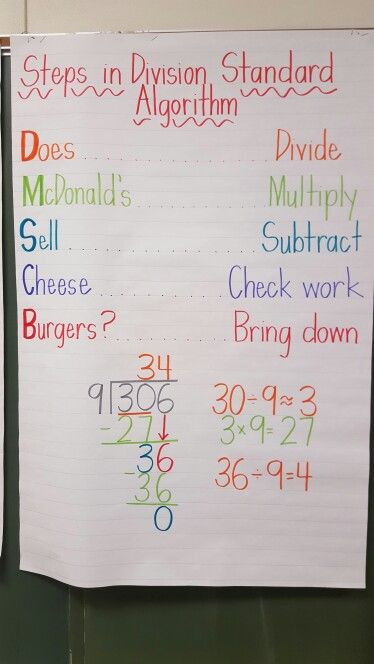 Steps in Division Standard
Algorithm
Does .................... Divide
McDonald's .................... Multiply
Sell .................... Subtract
Cheese .................... Check work
Burgers? .................... Bring down
34
9)306 30÷9≈3
-27↓ 3×9=27
36 36÷9=4
-36
0